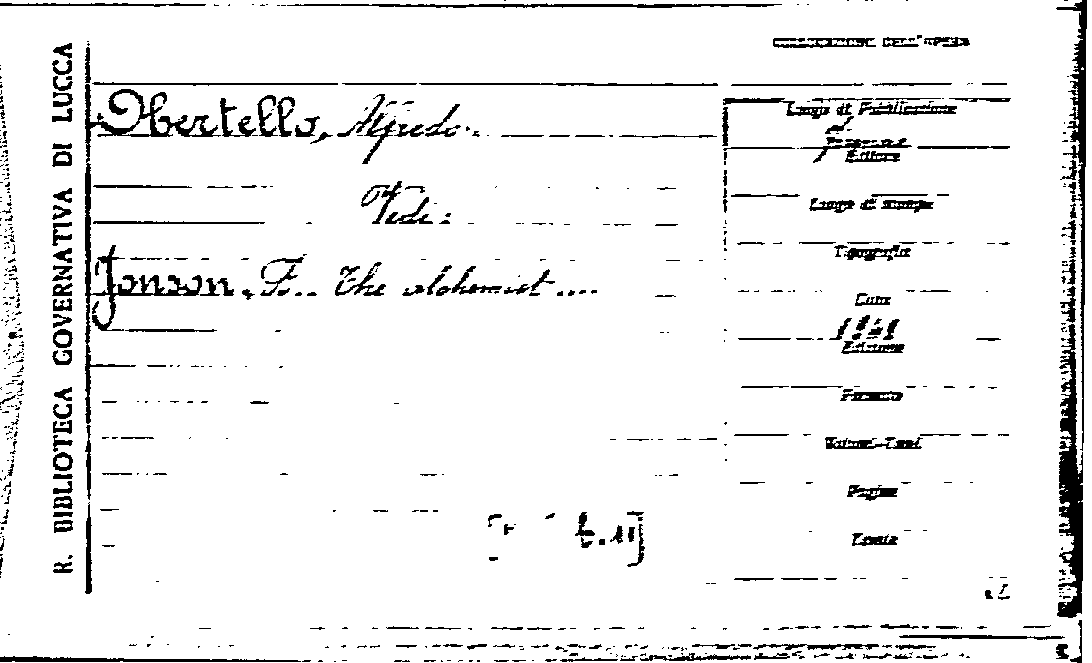 R. BIBLIOTECA GOVERNATIVA DI LUCCA
Obertello, Alfredo.
Vedi:
Jonson, F.. The alchemist ....
Luogo di Pubblicazione
Editore
Luogo di stampa
Tipografia
Data
Edizione
Formato
Volumi-Tomi
Pagine